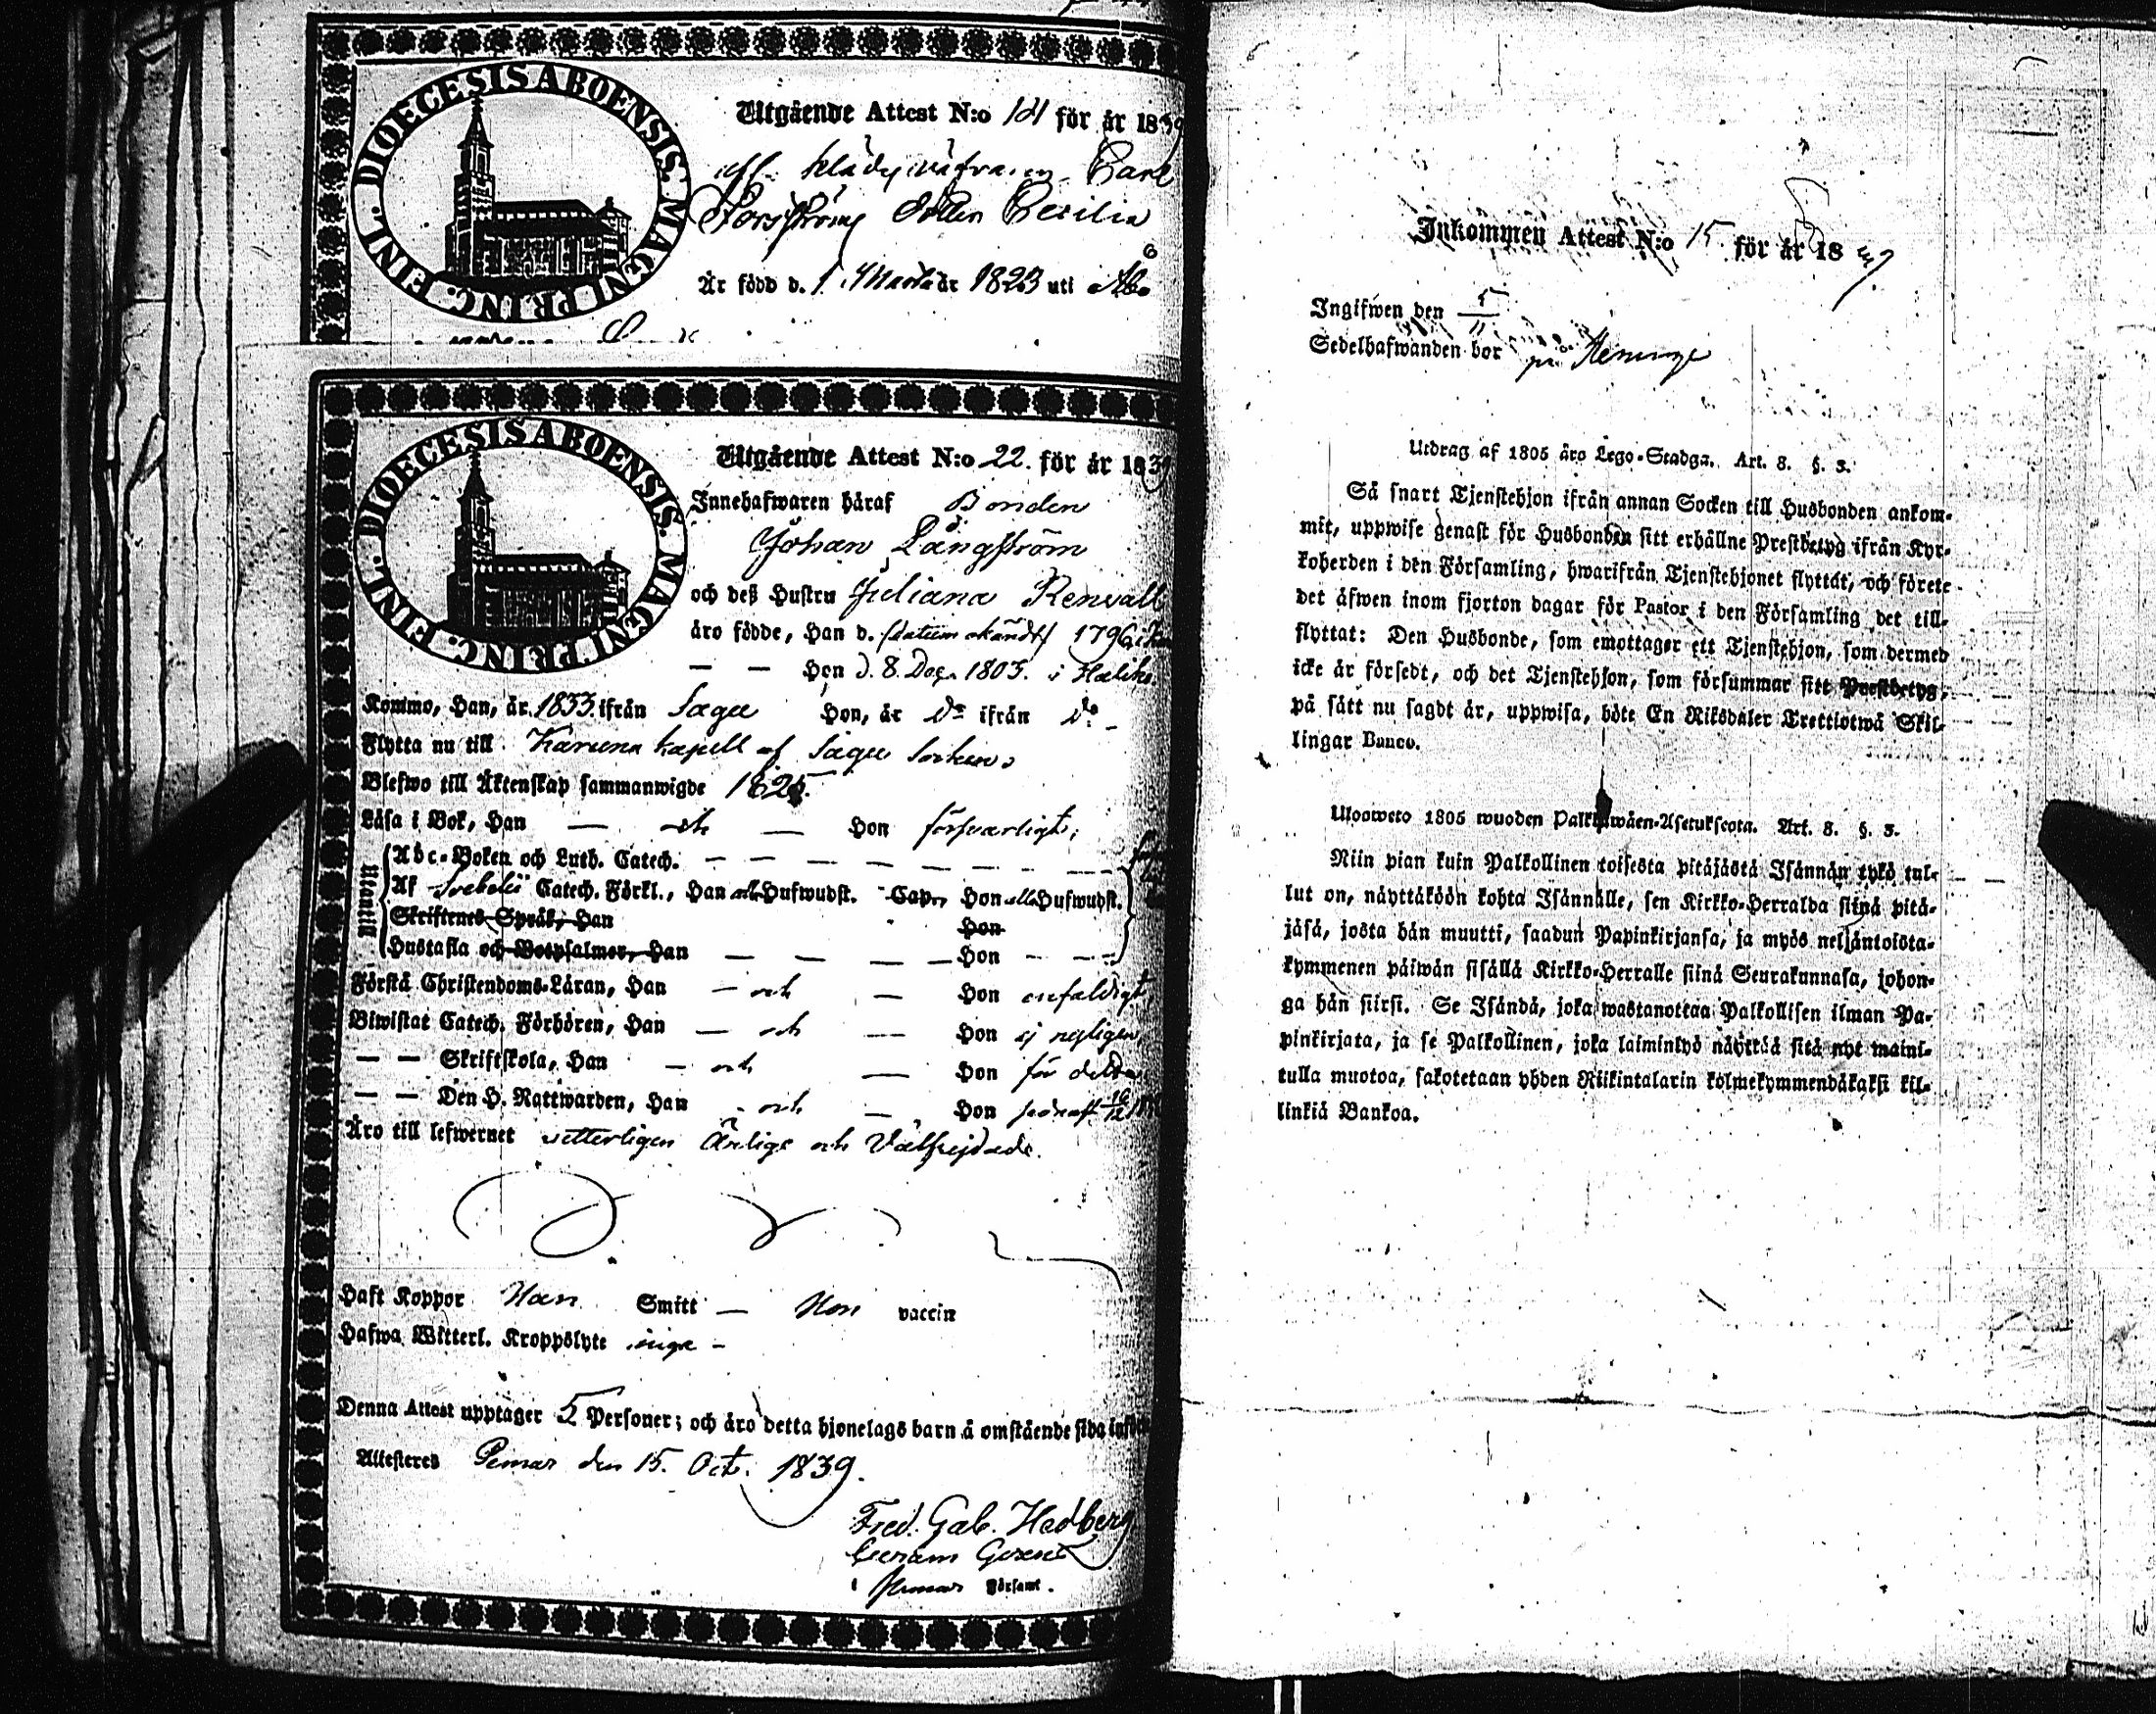 DIOECESIS ABOENSIS. MAGNI PRINC. FINL.
Utgående Attest N:o 141 för år 1839
Carl
Forsströms Dotter Cecilia
Är född d. 1 Martii år 1823 uti Åbo
DIOECESIS ABOENSIS. MAGNI PRINC. FINL.
Utgående Attest N:o 22. för år 1839
Innehafwaren häraf Bonden
Johan Långström
och deß Hustru Juliana Renvall
äro födde, Han d. (datum okändt) 1796 i
— — Hon d. 8. Dec. 1803. i Haliko
Kommo, Han, år 1833 ifrån Sagu Hon, år do ifrån do
Flytta nu till Karuna kapell af Sagu Socken.
Blefwo till Äktenskap sammanwigde 1825.
Läsa i Bok, Han — och — Hon försvarligt;
Utantill
Abc-Boken och Luth. Catech. — — — — — — — —
Af Svebelii Catech. Förkl., Han alla Hufwudst. Cap. Hon alla Hufwudst.
Skriftenes Språk, Han Hon
Hustafla och Botpsalmer, Han — — — — Hon — —
Förstå Christendoms-Läran, Han — och — Hon enfaldigt
Biwistat Catech. Förhören, Han — och — Hon ej nyligen
— — Skriftskola, Han — och — Hon för detta
— — Den H. Nattwarden, Han — och — Hon sednast 16/12
Äro till lefwernet vetterligen Ärlige och Välfrejdade.
Haft Koppor Han Smitt — Hon vaccin
Hafwa Witterl. Kroppslyte inga —
Denna Attest upptager 5 Personer; och äro detta hjonelags barn å omstående sida
Attesteres Pemar den 15. Oct. 1839.
Fred. Gab. Hedberg
i Pemar Församl.
Inkommen Attest N:o 15 för år 1839
Ingifwen den 5/11
Sedelhafwanden bor på
Utdrag af 1805 års Lego-Stadga. Art. 8. §. 3.
Så snart Tjenstehjon ifrån annan Socken till Husbonden ankom-
mit, uppwise genast för Husbonden sitt erhållne Prestbetyg ifrån Kyr-
koherden i den Församling, hwarifrån Tjenstehjonet flyttat, och förete
det äfwen inom fjorton dagar för Pastor i den Församling det till-
flyttat: Den Husbonde, som emottager ett Tjenstehjon, som dermed
icke är försedt, och det Tjenstehjon, som försummar sitt Prestbetyg,
på sätt nu sagdt är, uppwisa, böte En Riksdaler Trettiotwå Skil-
lingar Banco.
Uloosweto 1805 wuoden Palkkawäen-Asetuksesta. Art. 8. §. 3.
Niin pian kuin Palkollinen toisesta pitäjästä Isännän tykö tul-
lut on, näyttäköön kohta Isännälle, sen Kirkko-Herralda siinä pitä-
jäsä, josta hän muutti, saadun Papinkirjansa, ja myös neljäntoista-
kymmenen päiwän sisällä Kirkko-Herralle siinä Seurakunnasa, johon-
ga hän siirsi. Se Isändä, joka wastanottaa Palkollisen ilman Pa-
pinkirjata, ja se Palkollinen, joka laiminlyö näyttää sitä nyt maini-
tulla muotoa, sakotetaan yhden Riikintalarin kolmekymmendäkaksi kil-
linkiä Bankoa.